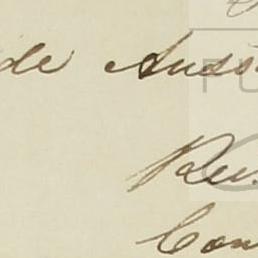 de Auss
Rev.
Com